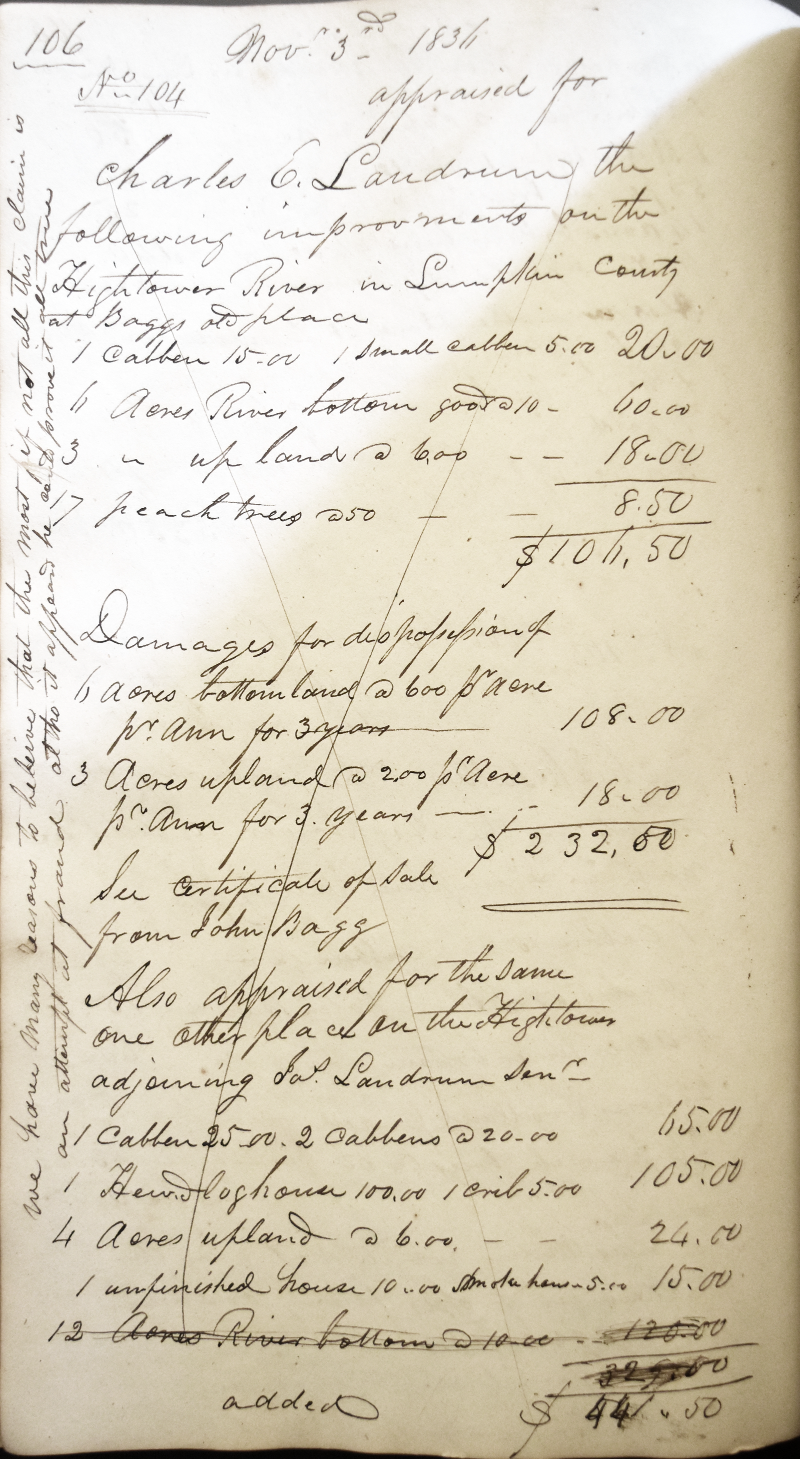 106
Novr. 3rd 1836
No 104
appraised for
Charles E. Landrum the
following improvments on the
Hightower River in Lumpkin County
at Baggs old place
1 Cabben 15.00 1 Small cabben 5.00 20.00
6 Acres River bottom good @ 10 - 60.00
3 " up land @ 6.00 - - 18.00
17 peach trees @ 50 - - 8.50
$ 106,50
Damages for dispossession of
6 Acres bottom land @ 600 pr Acre
pr. Ann for 3 years 108.00
3 Acres upland @ 2.00 pr Acre
pr. Ann for 3. years - - 18.00
$ 232,50
See certificate of sale
from John Bagg
Also appraised for the same
one other place on the Hightower
adjoining Jas. Landrum Senr
1 Cabben 25.00. 2 Cabbens @ 20.00 65.00
1 Hewd log house 100.00 1 crib 5.00 105.00
4 Acres upland @ 6.00. - - 24.00
1 unfinished house 10.00 Smoke house 5.00 15.00
12 Acres River bottom @ 10.00 - 120.00
329.00
added $ 441.50
We have many reasons to beleive that the most if not all this claim is
an attempt at fraud altho it appears he can prove it all true